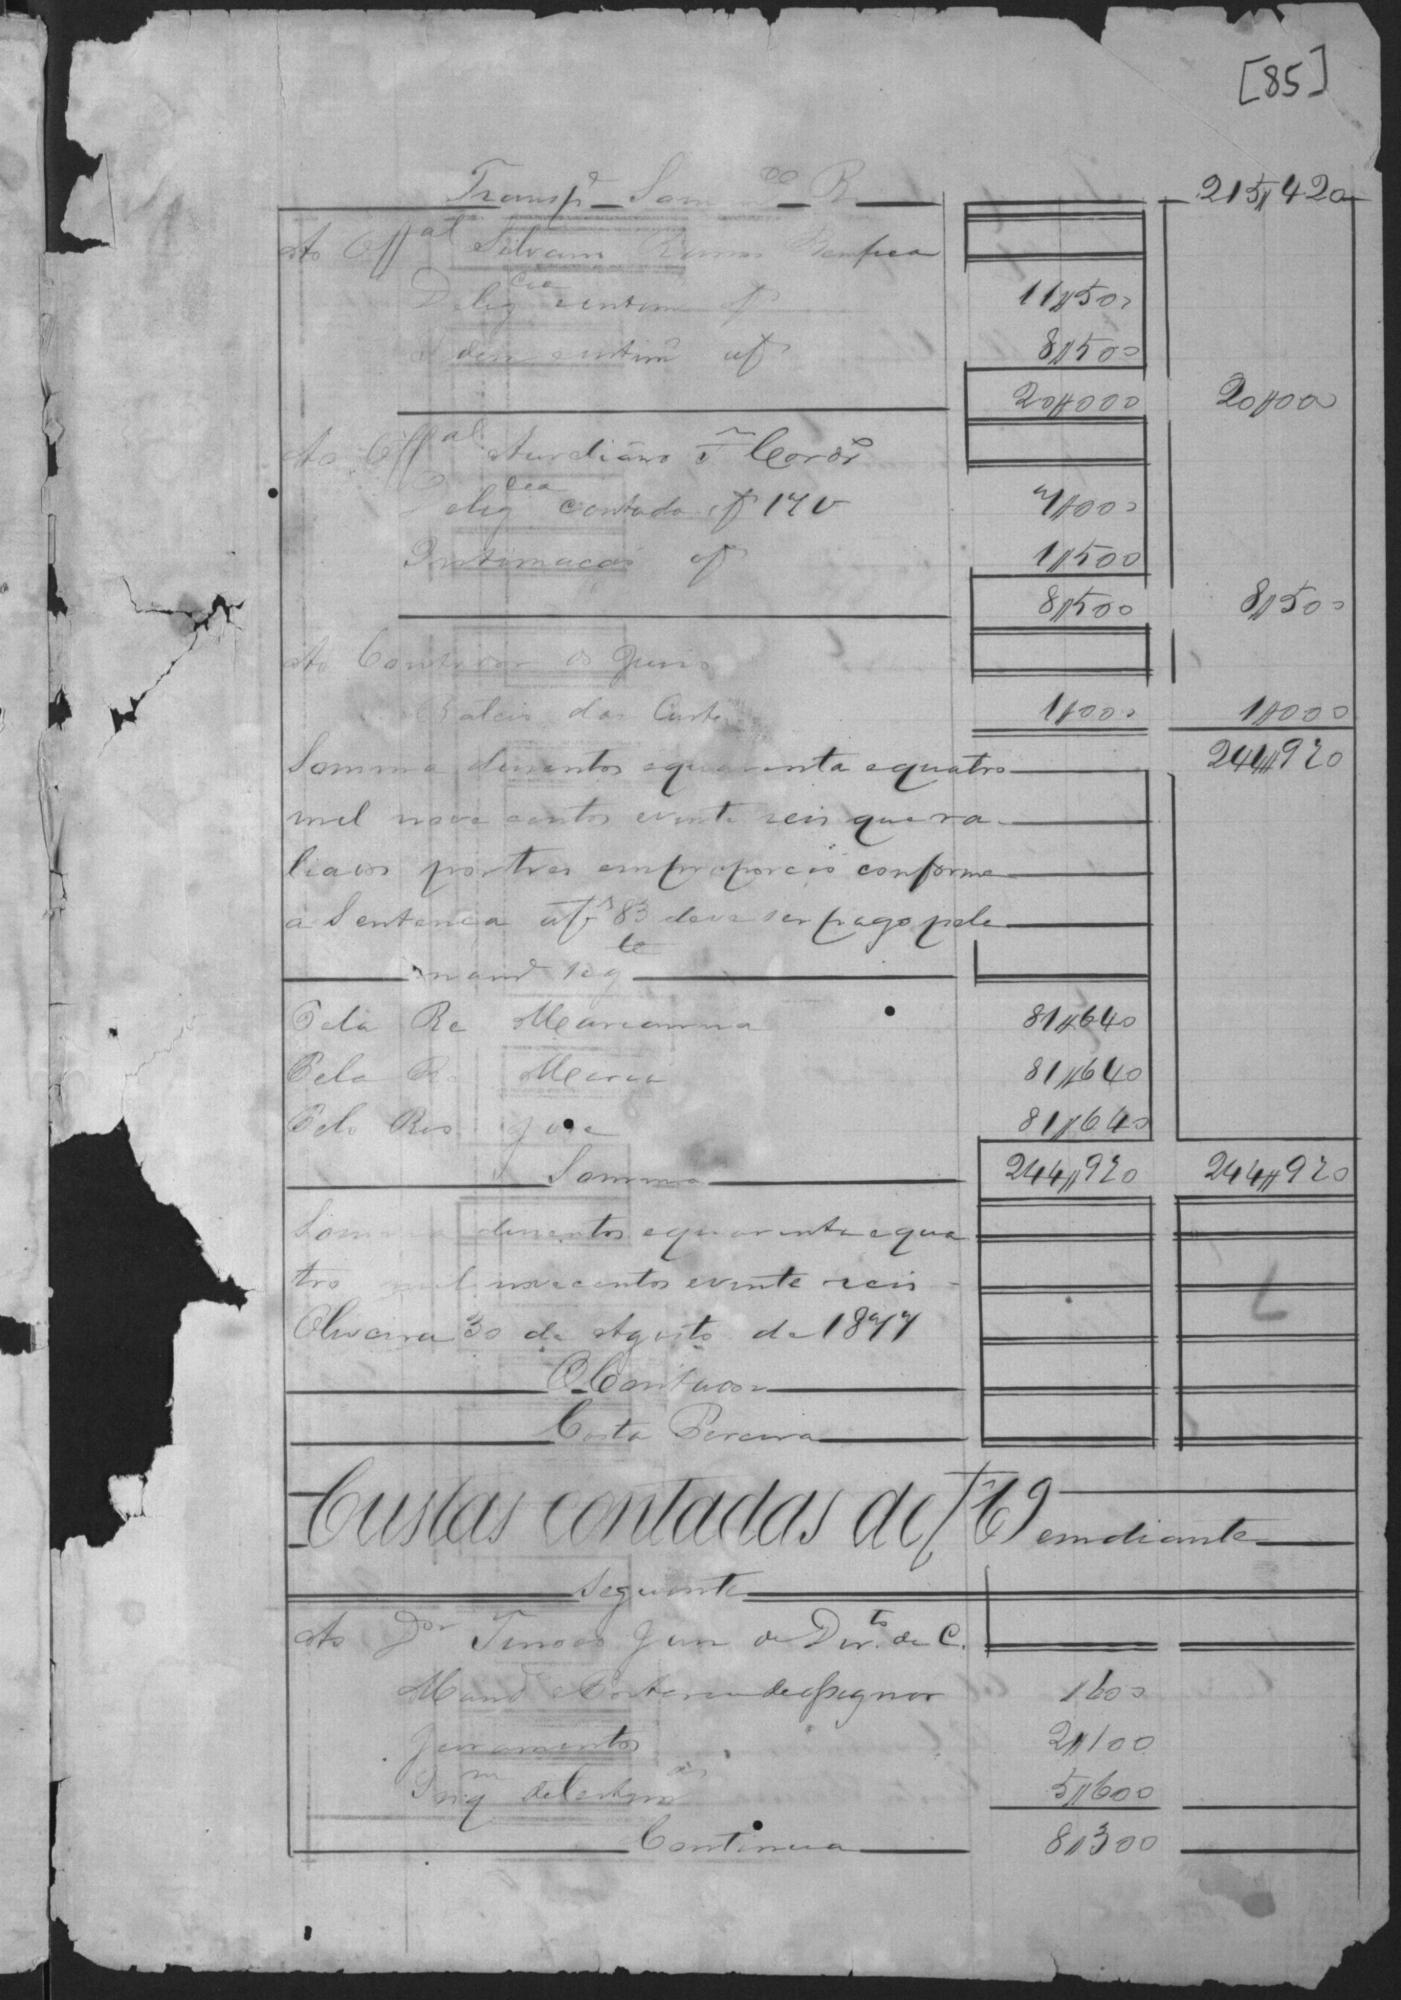 [85]
Transp.e Somma R 215$420
Ao Off.al Silvano Ramos Bemfica
Delig.cia 11$500
Idem intim 8$500
20$000 20$000
Ao Off.al Aureliano
Delig.cia contada af 17 v 7$000
Intimação af 1$500
8$500 8$500
Ao Contador do Juiso
Calculo das Custa 1$000 1$000
244$920
Somma dusentos equarenta equatro
mil nove centos evinte reis que ra-
teados por tres emproporção conforme
a Sentença af.s 83 deve ser pago pela
man.ra seg.te
Pela Re Marianna 81$640
Pela Re Maria 81$640
Pelo Reo Jose 81$640
Somma 244$920 244$920
Somma dusentos equarenta equa
tro mil novecentos evinte reis -
Oliveira 30 de Agosto de 1877
O Contador
Costa Pereira
Custas contadas de f emdiante
seguinte
Ao D.or Juis de Dir.to da C.
Mand.o 1600
Juramentos 2$100
Inq.m de testem.as 5$600
Continua 8$300